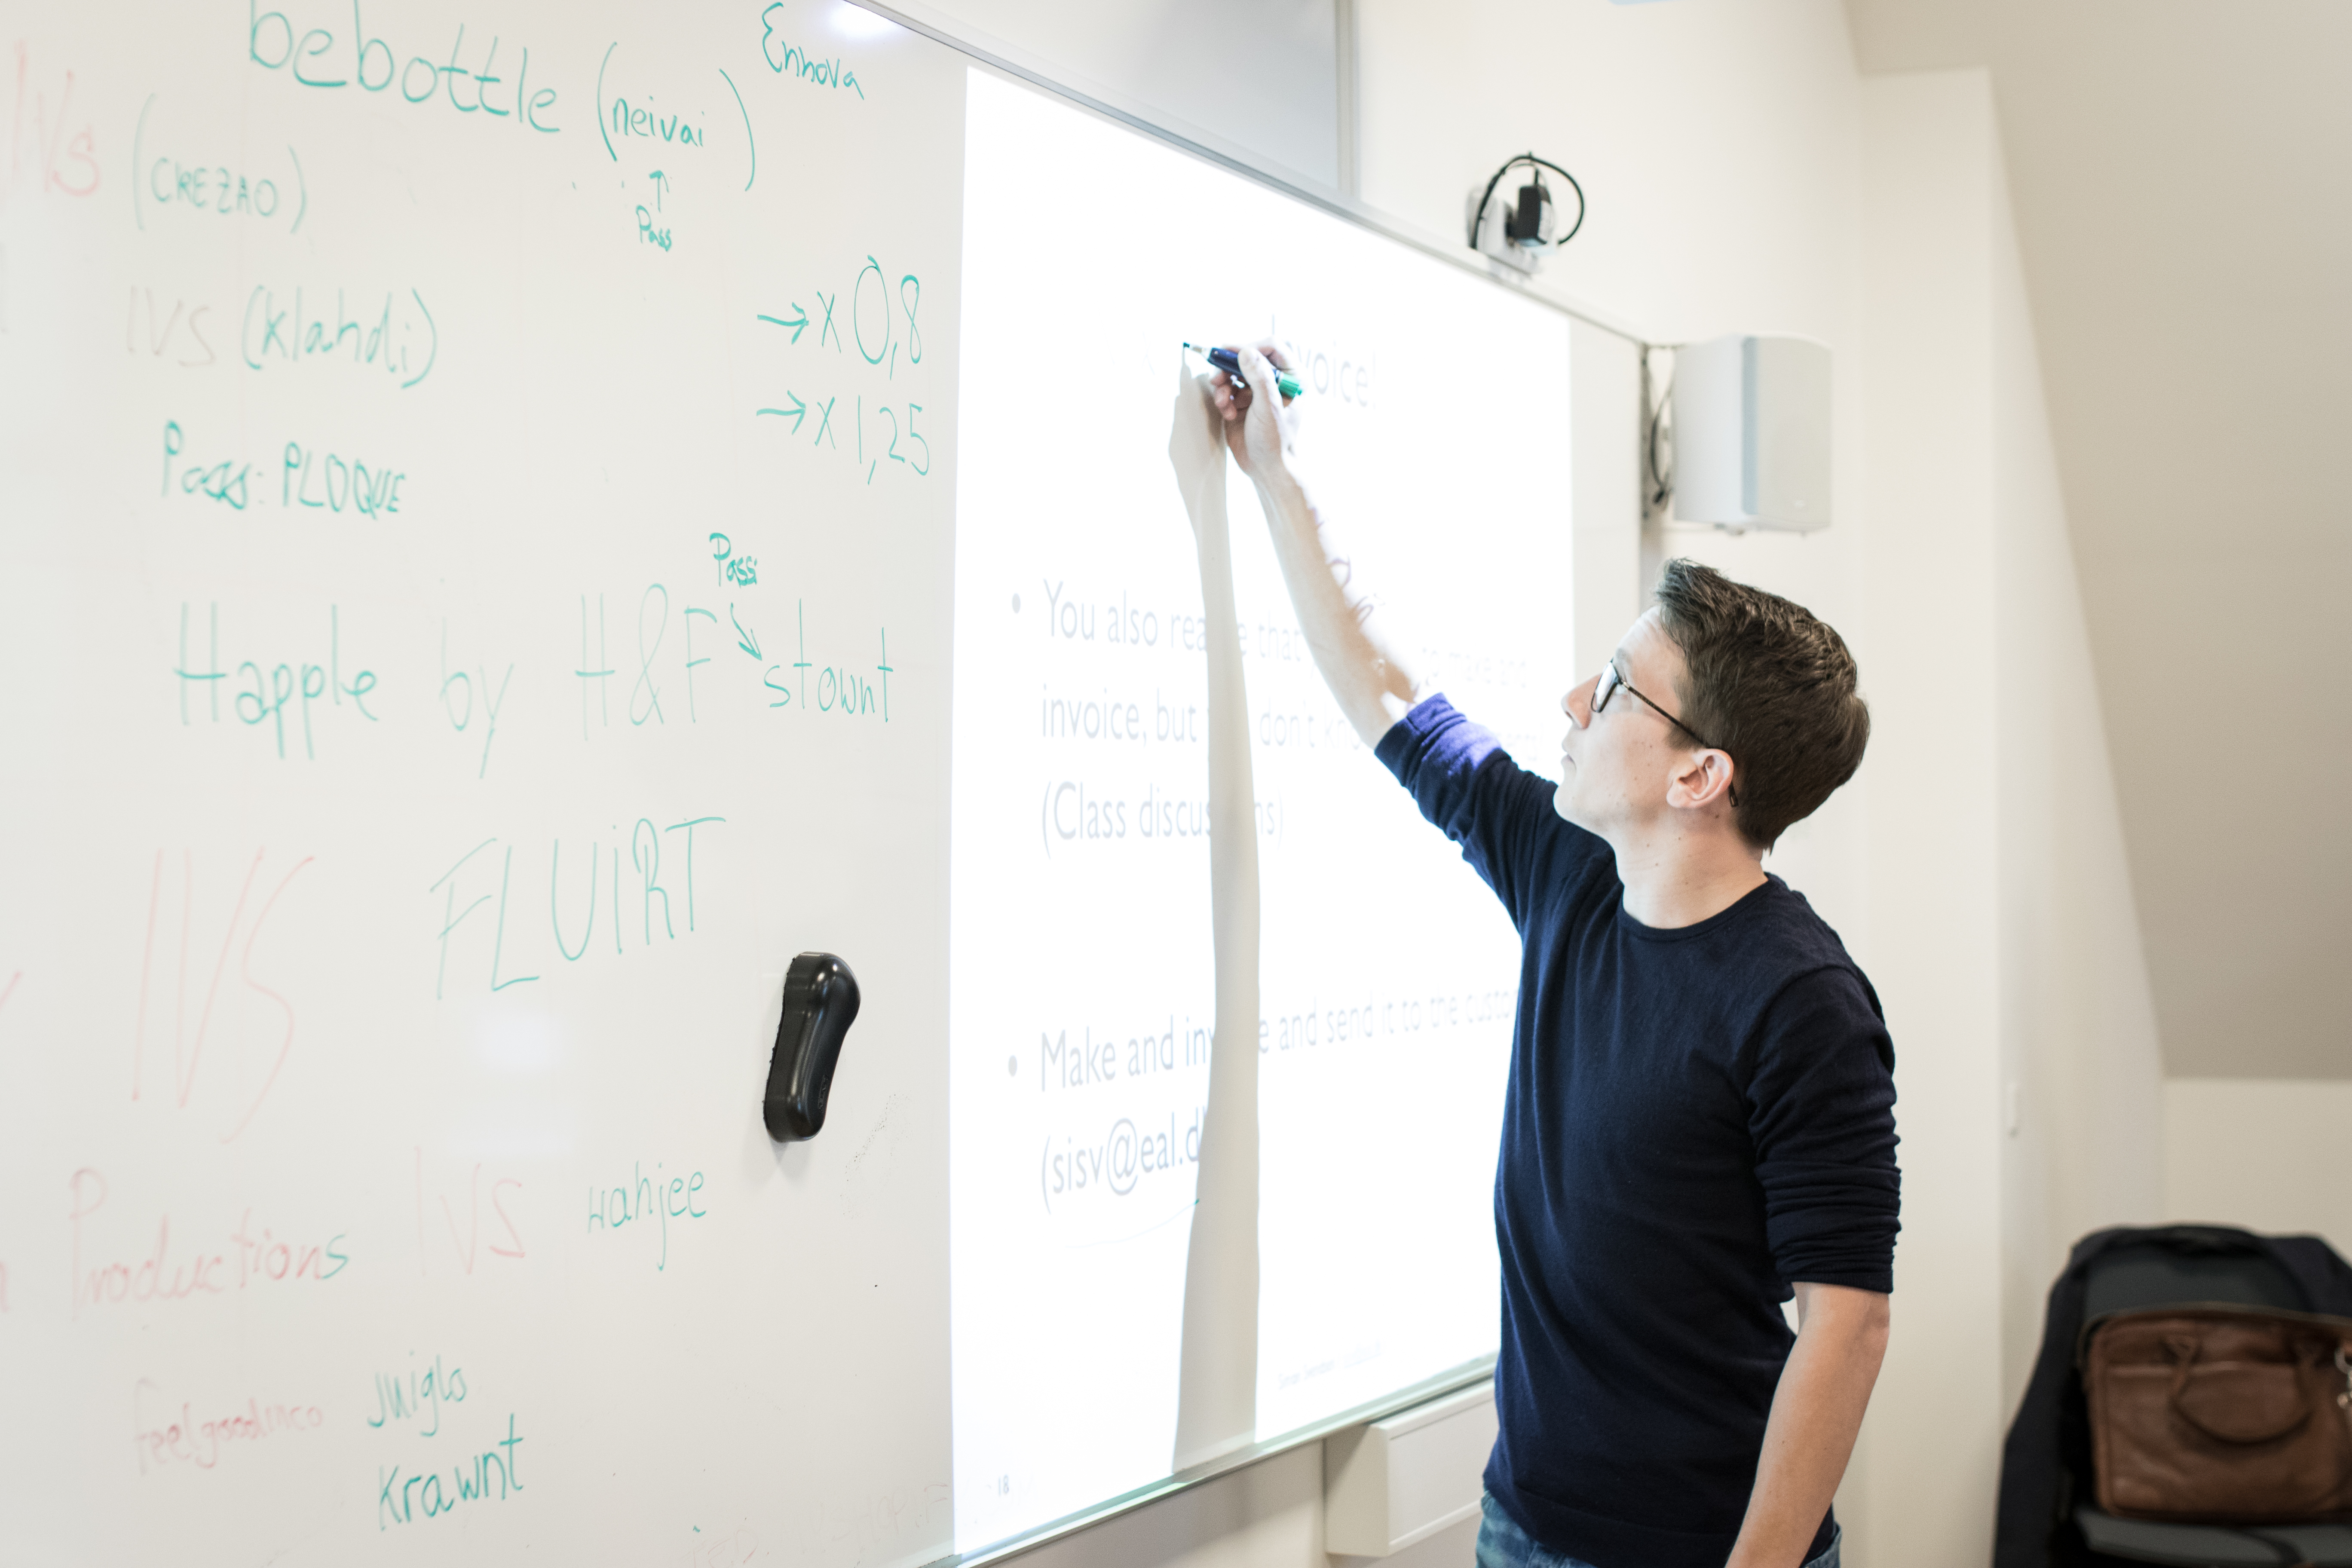 bebottle (neivai)
Ennova
IVs (CREZAO)
↑
Pass
IVS (Klahdi)
→ x 0,8
→ x 1,25
Pass: PLOQUE
Pass:
Happle by H&F stownt
IVS FLUiRT
Productions IVS wahjee
feelgoodinco Juiglo
Krawnt
voice!
• You also rea e that to make and
invoice, but don't
(Class discus ns)
• Make and inv e and send it to the custo
(sisv@eal.d
18